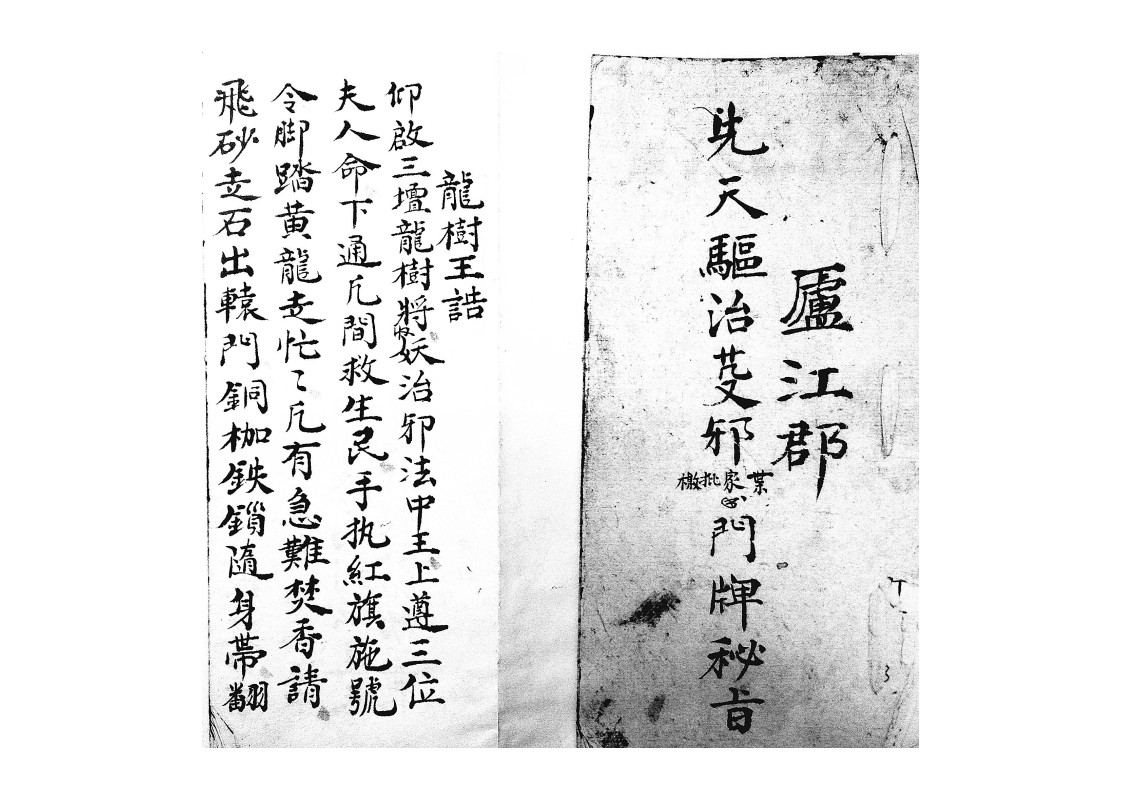 廬江郡
先天驅治芟邪門牌秘旨
葉家批檄
龍樹王誥
仰啟三壇龍樹將收妖治邪法中王上遵三位
夫人命下通凢間救生民手执紅旗施號
令脚踏黄龍赱忙〻凢有急難焚香請
飛砂赱石出轅門銅枷鉄鎖隨身帶翻